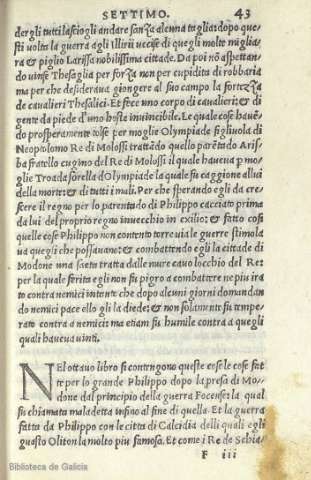 SETTIMO. 43
dergli tutti lasciogli andare sanza alcuna taglia: dopo que
sti volta la guerra agli Illirii uccise di quegli molte miglia
ra & piglio Larissa nobilissima cittade. Da poi nō aspettan
do vinse Thesaglia per forza non per cupidita di robbaria
ma per che desiderava giongere al suo campo la fortezza
de cavalieri Thesalici. Et fece uno corpo di cavalieri; & di
gente da piede d'uno hoste invincibile. Le quale cose havē
do prosperamente tolse per moglie Olympiade figlivola di
Neoptolomo Re di Molossi trattādo quello parētado Aris
ba fratello cugino del Re di Molossi il quale haveua p̄ mo
glie Troada sorella d'Olympiade la quale fu caggione alhui
della morte: & di tutti i mali. Per che sperando egli da cre
scere il regno per lo parentado di Philippo cacciato prima
da lui del proprio regno invecchio in exilio: & fatto cosi
quelle cose Philippo non contento torre via le guerre stimola
va quegli che possavano: & combattendo egli la cittade di
Modone una saeta tratta dalle mure cavo locchio del Re:
per la quale ferita egli non fu pigro a combattere ne piu ira
to contra nemici intente che dopo alcuni giorni domandan
do nemici pace ello gli la diede: & non solamente fu tempe
rato contra a nemici: ma etiam fu humile contra a quegli
quali haveua vinti.
NEl ottavo libro si contengono queste esele cose fat
te per lo grande Philippo dopo la presa di Mo
done dal principio della guerra Focense la qual
fu chiamata maladetta insino al fine di quella. Et la guerra
fatta da Philippo con le citta di Calcidia delli quali egli
guasto Oliton la molto piu famosa. Et come i Re de Schia
F iii
Biblioteca de Galicia